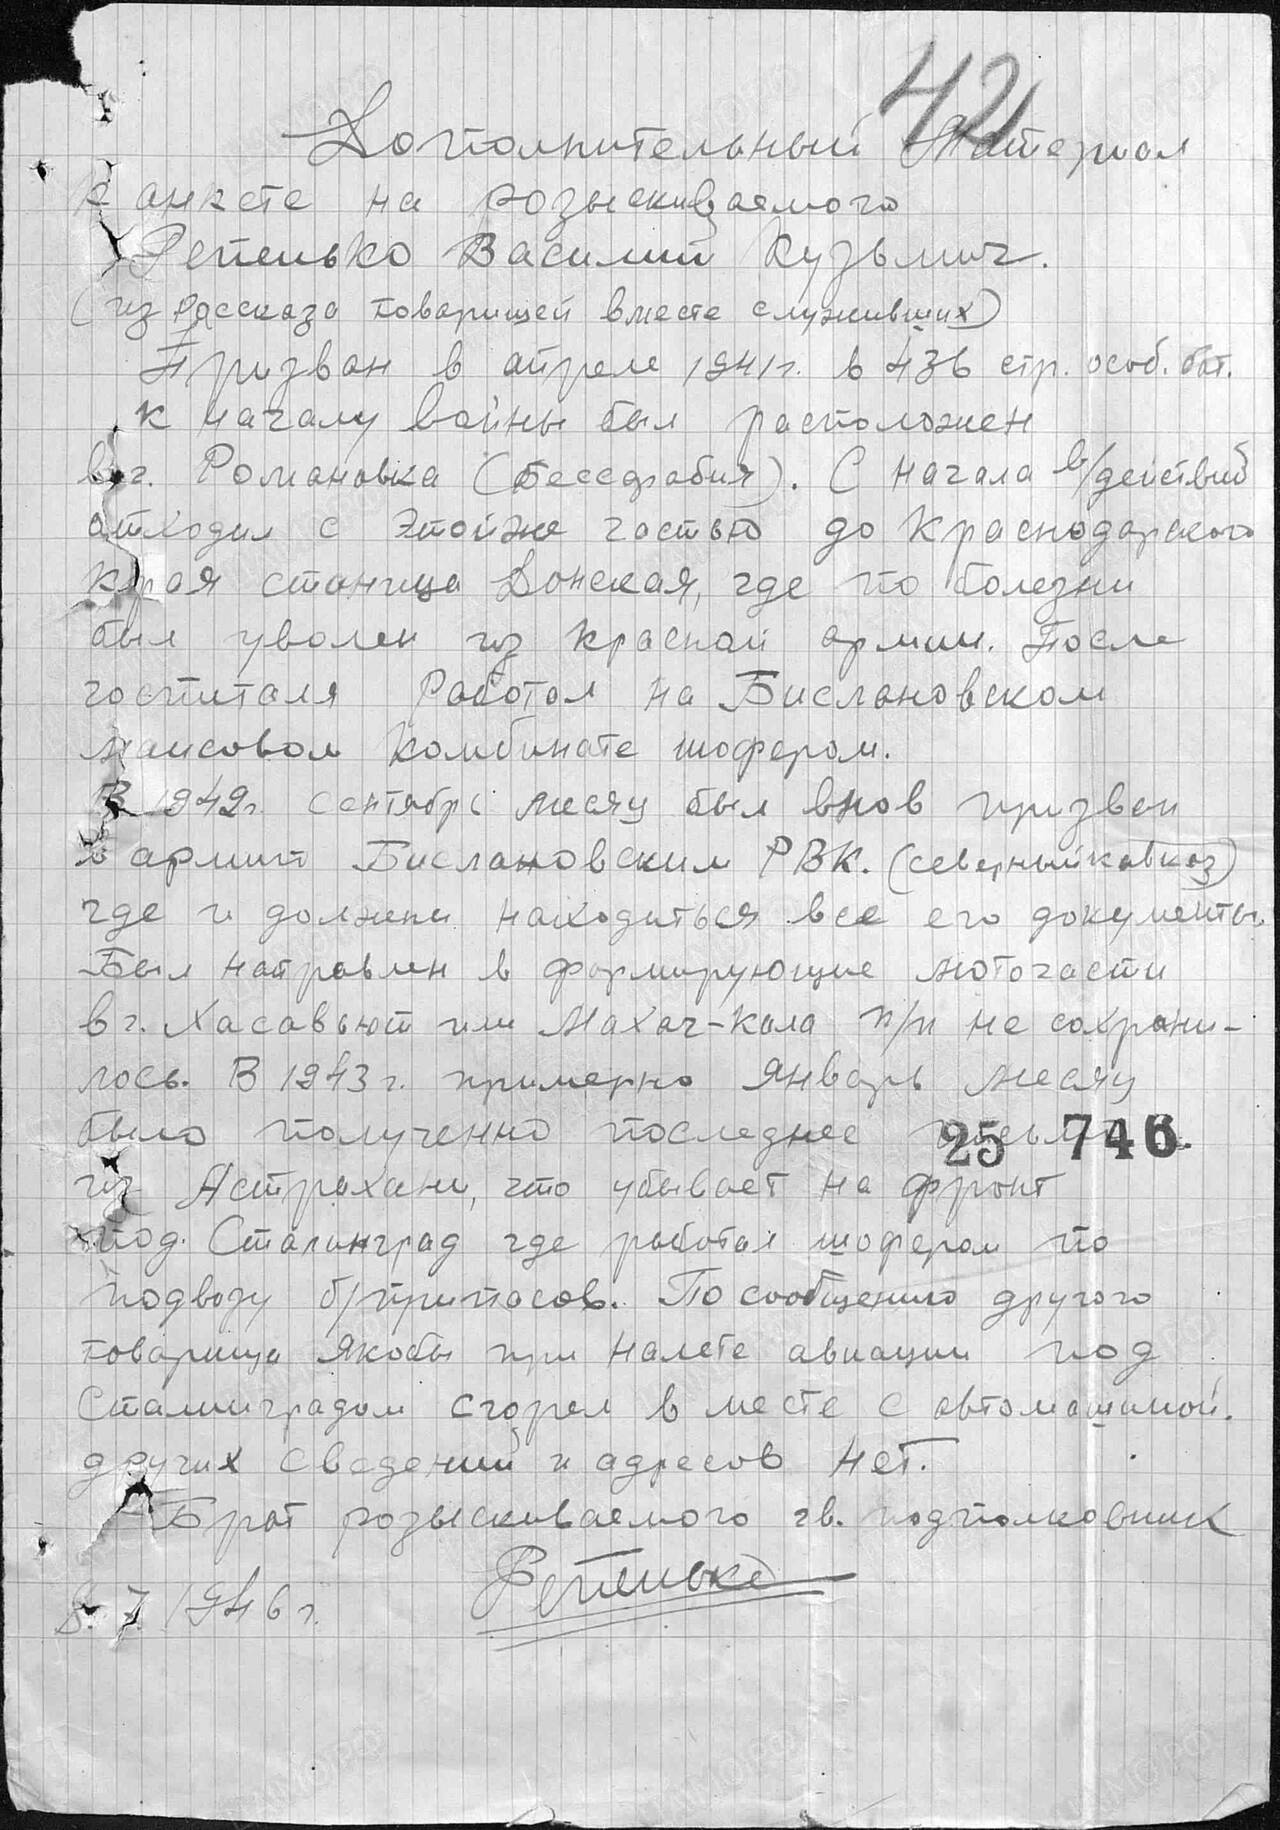 42
Дополнительный Материал
к анкете на розыскиваемого
Репенько Василий Кузьмич.
(из рассказа товарищей вместе служивших)
Призван в апреле 1941г. в 436 стр. особ. бат.
к началу войны был расположен
в г. Романовка (Бессарабия). С начала в/действий
отходил с этойже частью до Краснодарского
края станица Донская, где по болезни
был уволен из красной армии. После
госпиталя работал на Беслановском
маисовом комбинате шофером.
В 1942г. сентябрь месяц был внов призван
в армии Беслановским РВК. (северный кавказ)
где и должны находиться все его документы.
Был направлен в формирующие моточасти
в г. Хасавьюит или Махач-Кала п/п не сохрани-
лось. В 1943г. примерно январь месяц
было полученно последнее письмо
25 746.
из Астрахани, что убывает на фронт
под. Сталинград где работал шофером по
подвозу б/припасов. По сообщению другого
товарища якобы при налете авиации под
Сталинградом сгорел в месте с автомашиной.
других сведений и адресов нет.
Брат розыскиваемого гв. подполковник
Репенько
8. 7. 1946г.